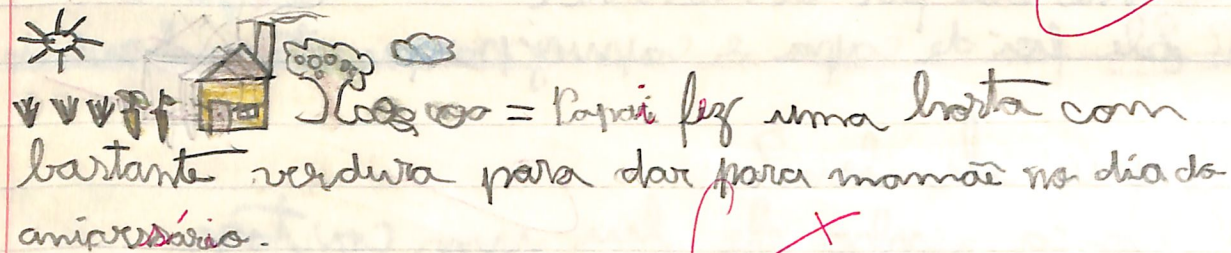 = Papai fez uma horta com
bastante verdura para dar para mamãe no dia do
aniversário.